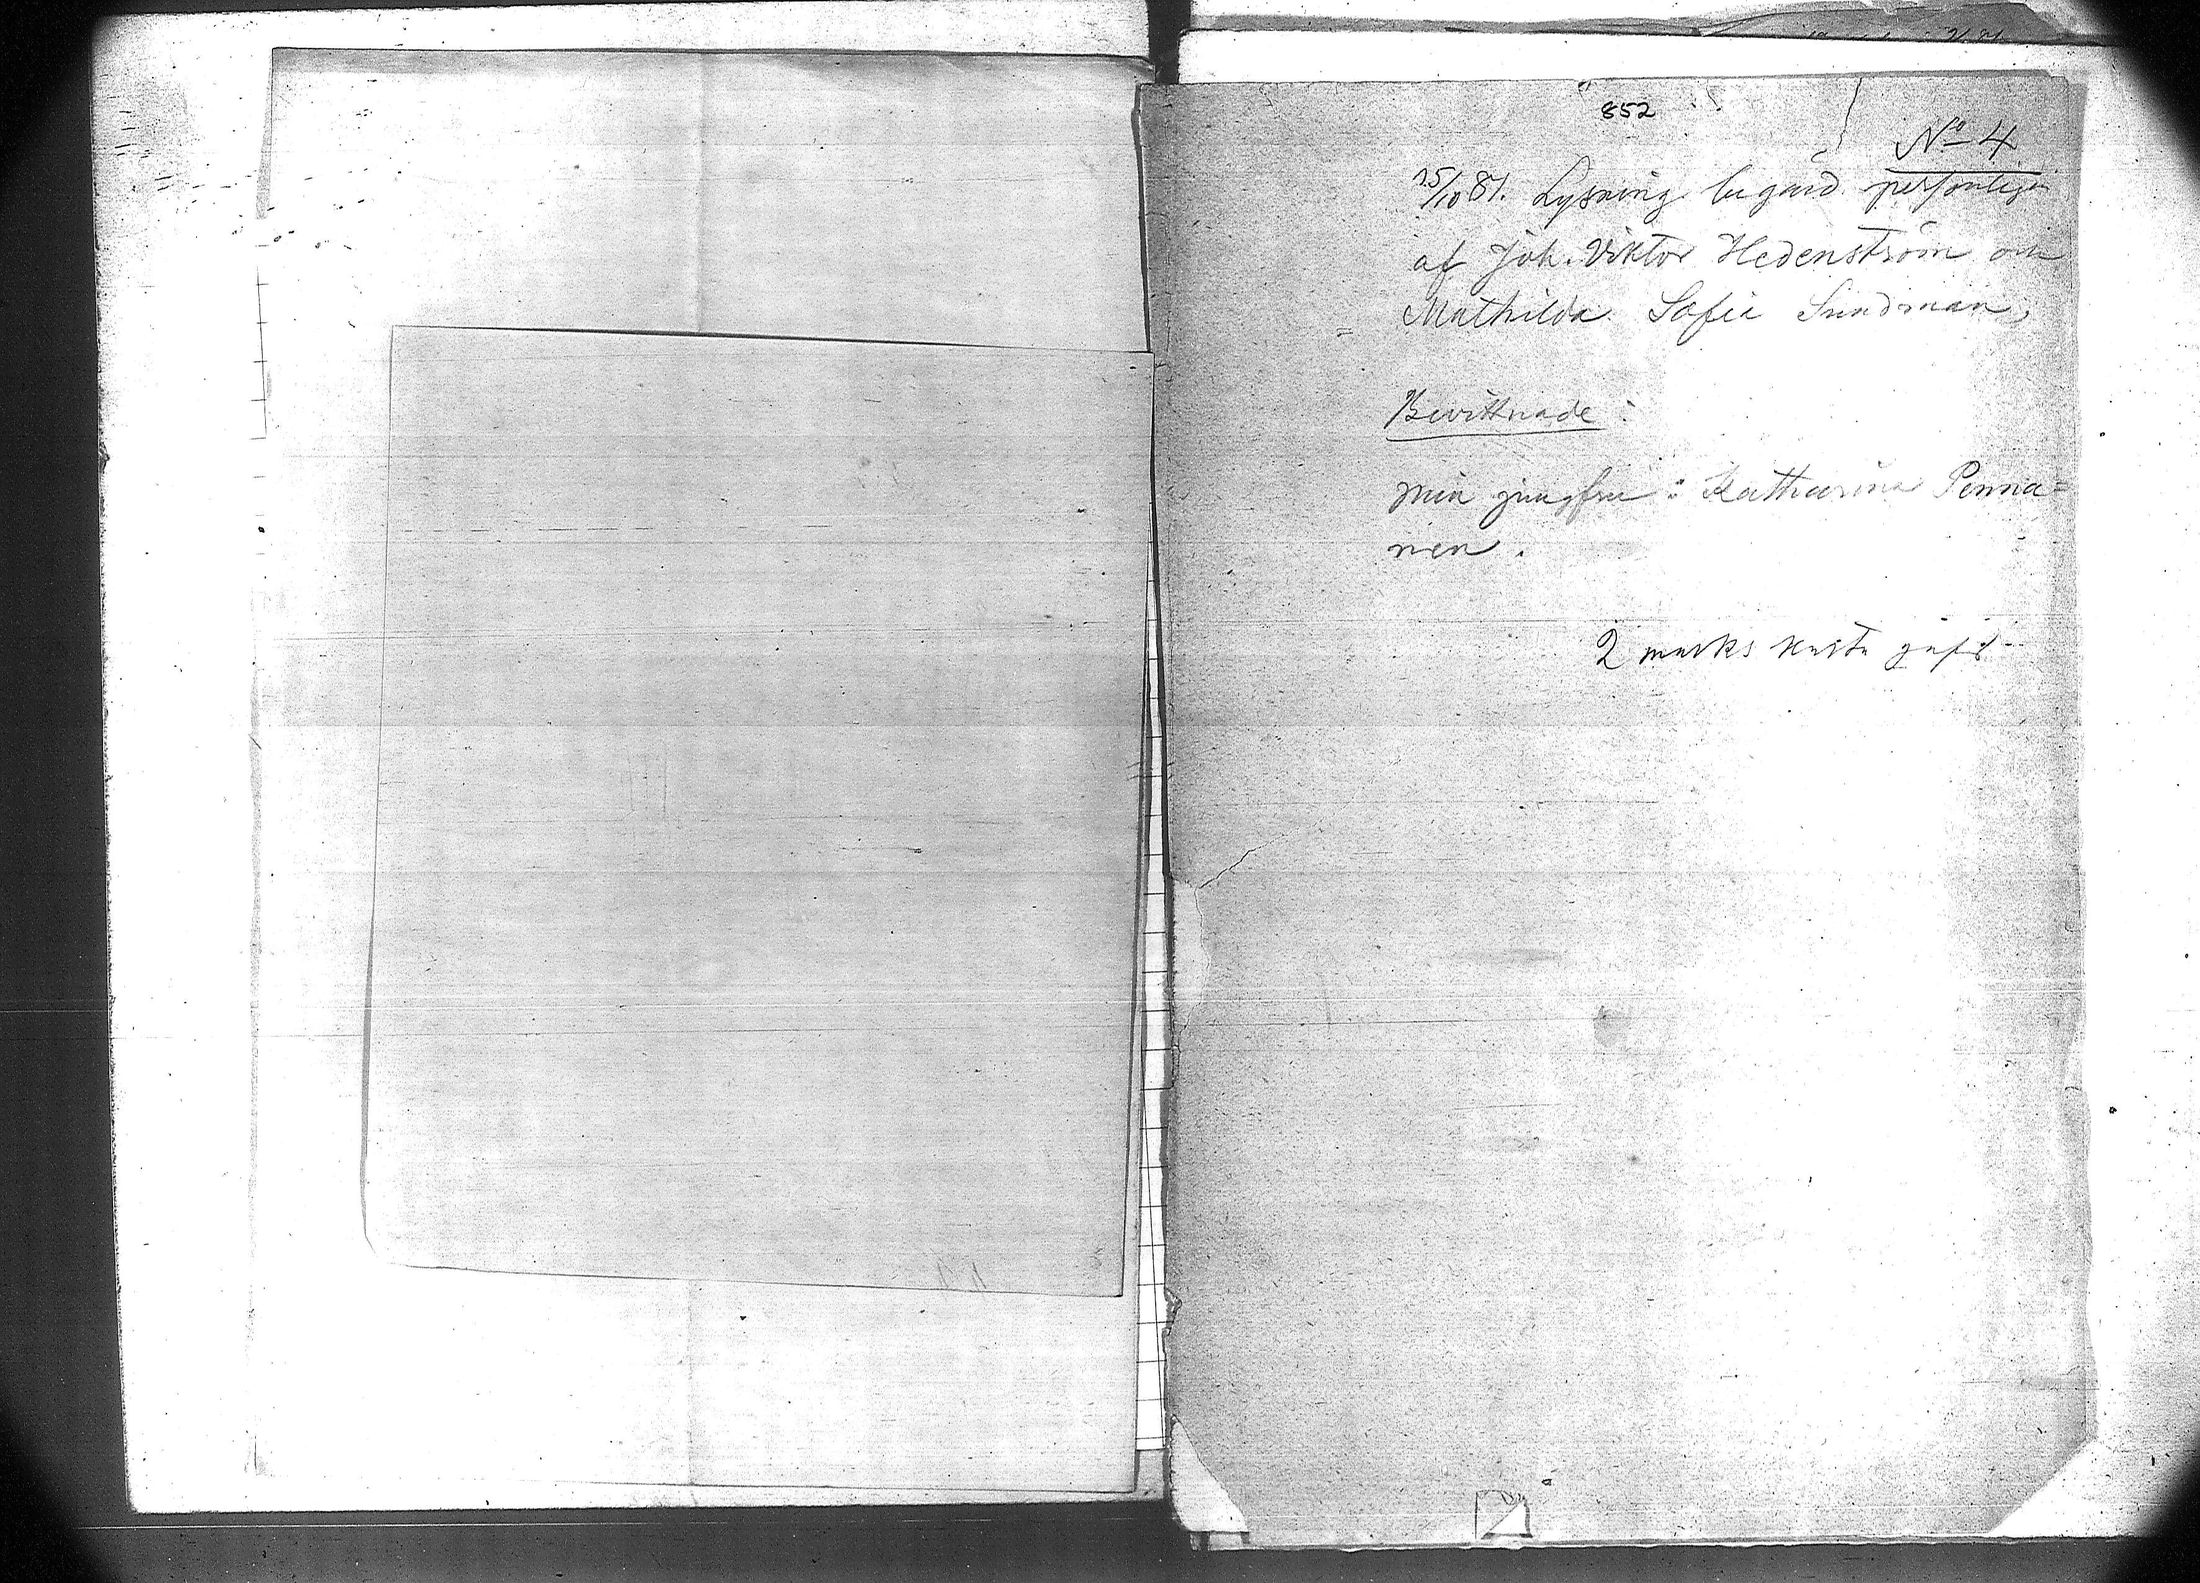 852
No 4
15/10 81. Lysning begärd personligen
af Joh. Viktor Hedenström och
Mathilda Sofia Sundman,
Bevittnade:
min jungfru: Katharina Penna=
nen.
2 marks karta